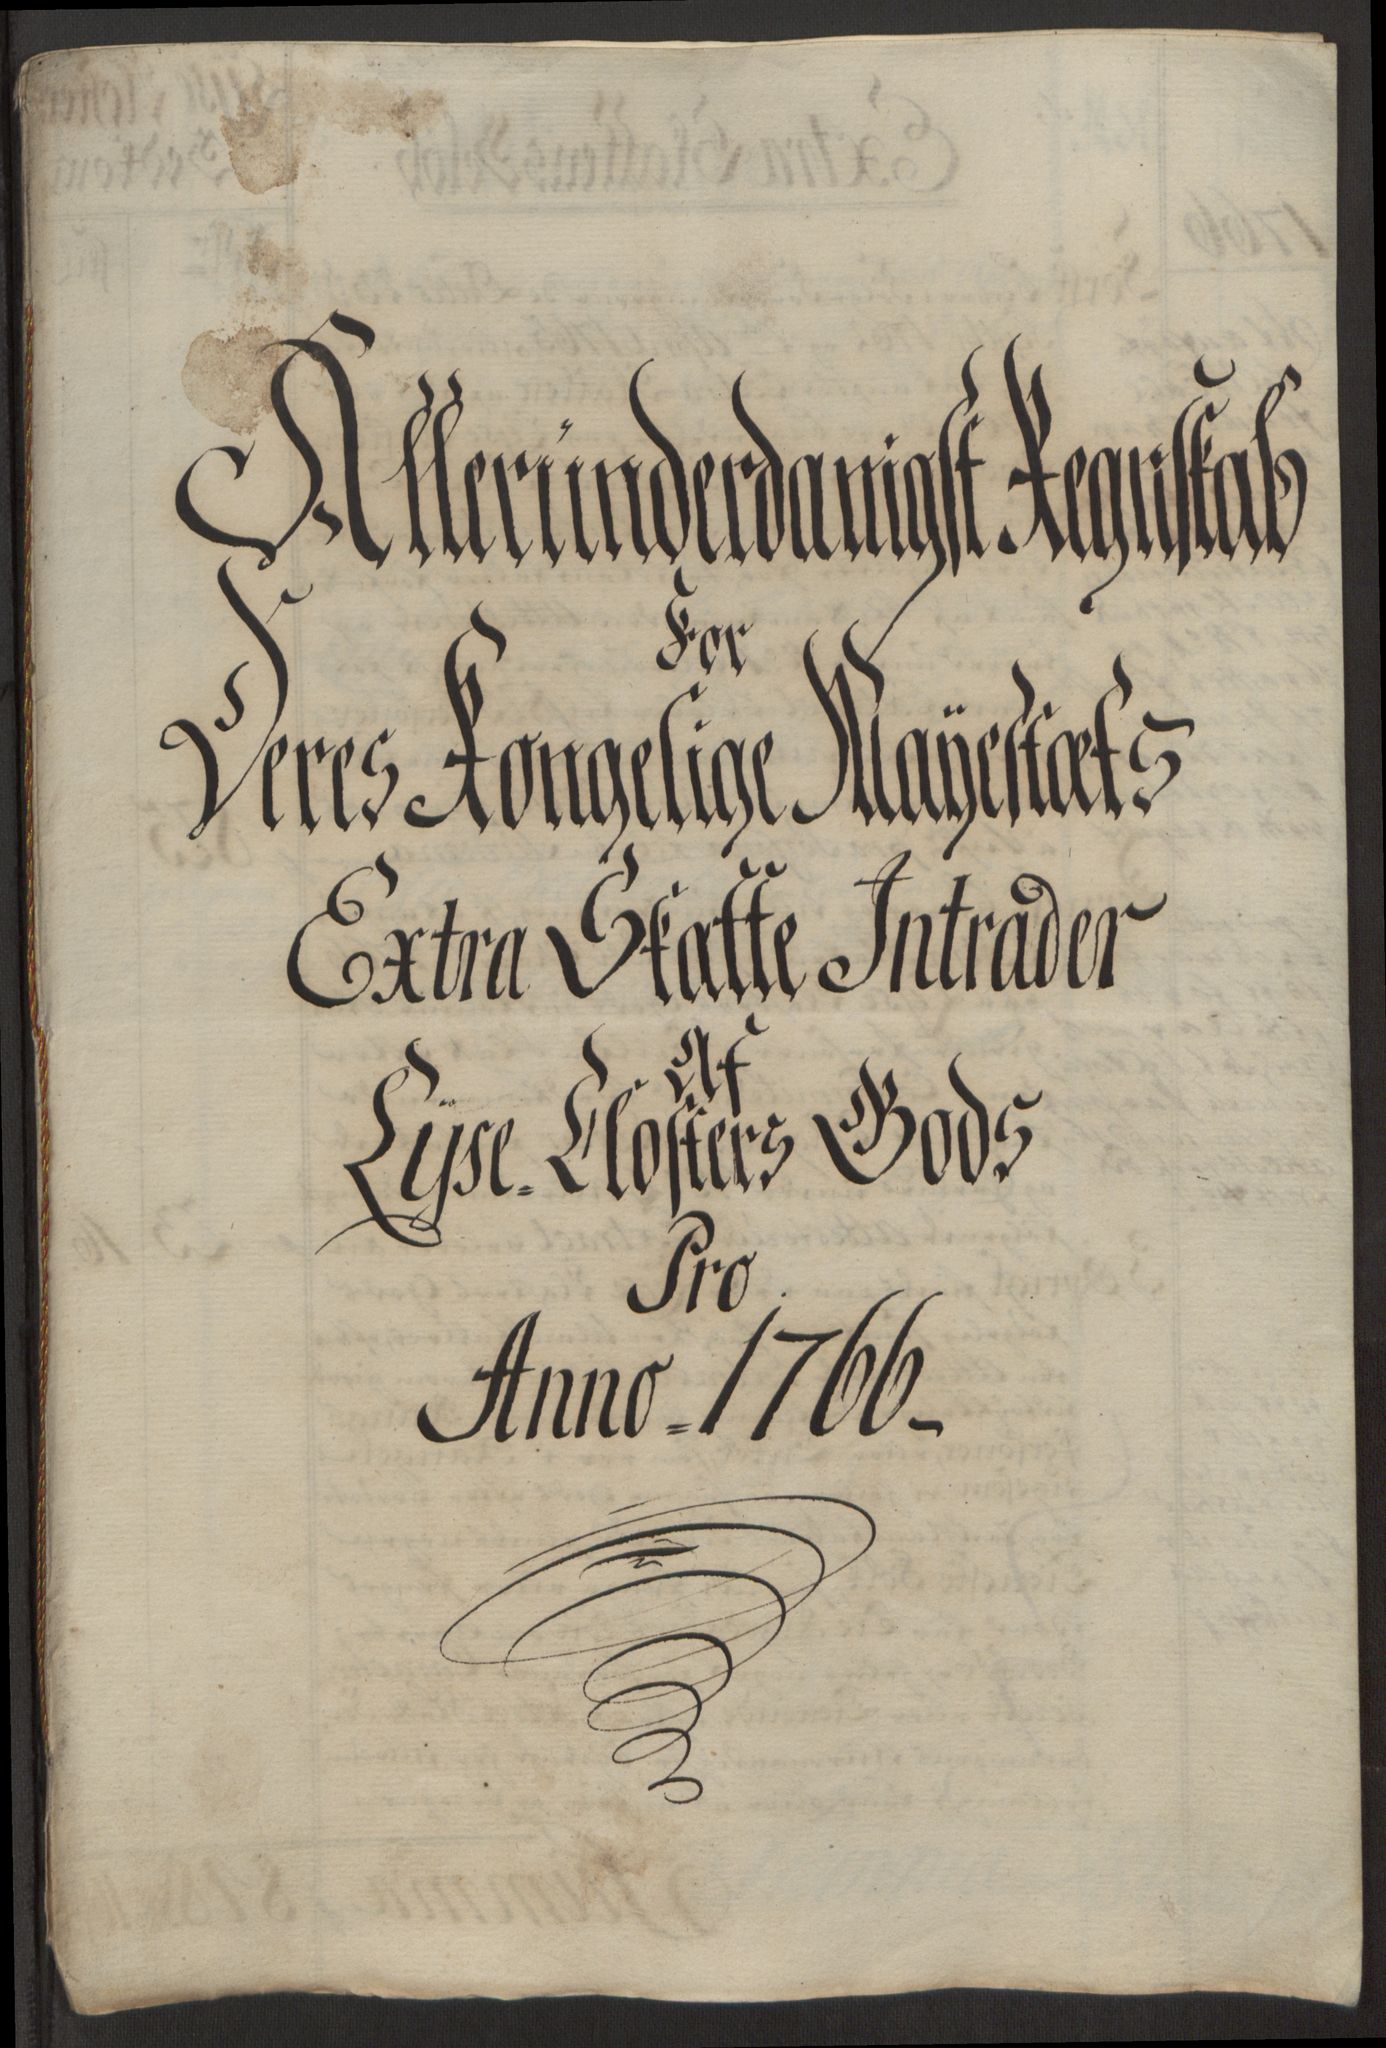 Alleründerdanigst Regnskab
For
Deres Kongelige Mayestæts
Extra Skatte Intrader
Af
Lyse-Closters Gods
Pro
Anno-1766-